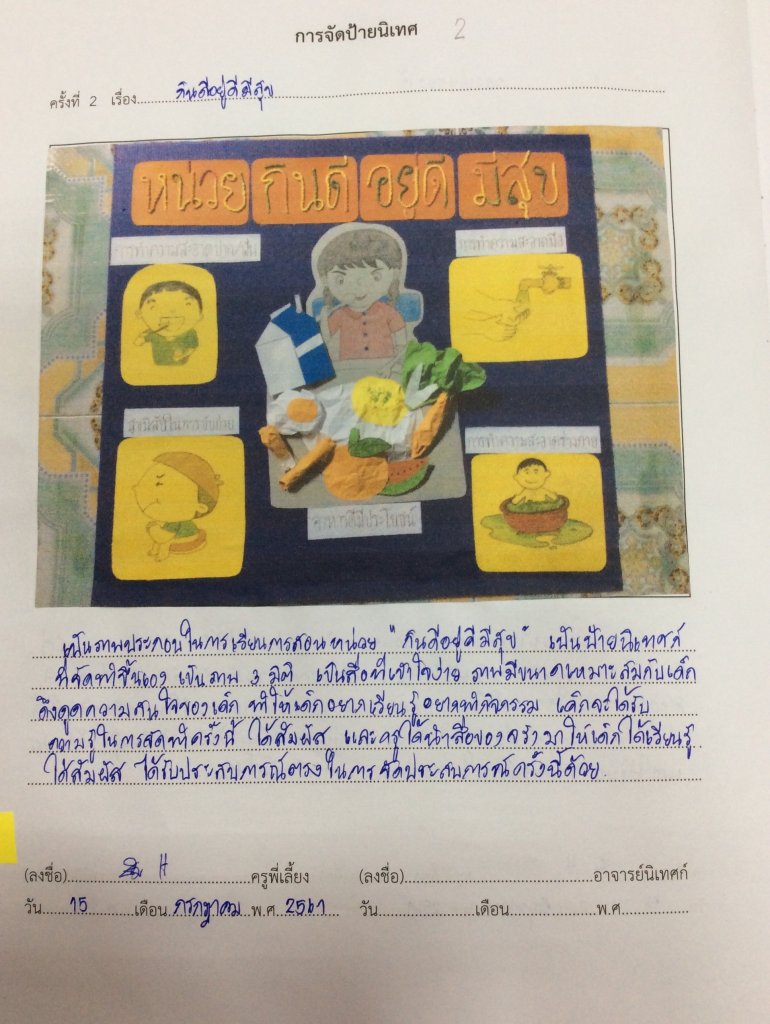 การจัดป้ายนิเทศ 2
ครั้งที่ 2 เรื่อง กินดีอยู่ดีมีสุข
หน่วย กินดี อยู่ดี มีสุข
การทำความสะอาดปาก/ฟัน
การทำความสะอาดมือ
สุขนิสัยในการขับถ่าย
การทำความสะอาดร่างกาย
อาหารดีมีประโยชน์
เป็นภาพประกอบในการเรียนการสอน หน่วย "กินดีอยู่ดีมีสุข" เป็นป้ายนิเทศก์
ที่จัดทำขึ้นเอง เป็นภาพ 3 มิติ เป็นสื่อที่เข้าใจง่าย ภาพมีขนาดเหมาะสมกับเด็ก
ดึงดูดความสนใจของเด็ก ทำให้เด็กอยากเรียนรู้ อยากทำกิจกรรม เด็กจะได้รับ
ความรู้ในการจัดทำครั้งนี้ ได้สัมผัส และครูได้นำสื่อของจริงมาให้เด็กได้เรียนรู้
ได้สัมผัส ได้รับประสบการณ์ตรงในการจัดประสบการณ์ครั้งนี้ด้วย.
(ลงชื่อ) ครูพี่เลี้ยง (ลงชื่อ) อาจารย์นิเทศก์
วัน 15 เดือน กรกฎาคม พ.ศ 2561 วัน เดือน พ.ศ